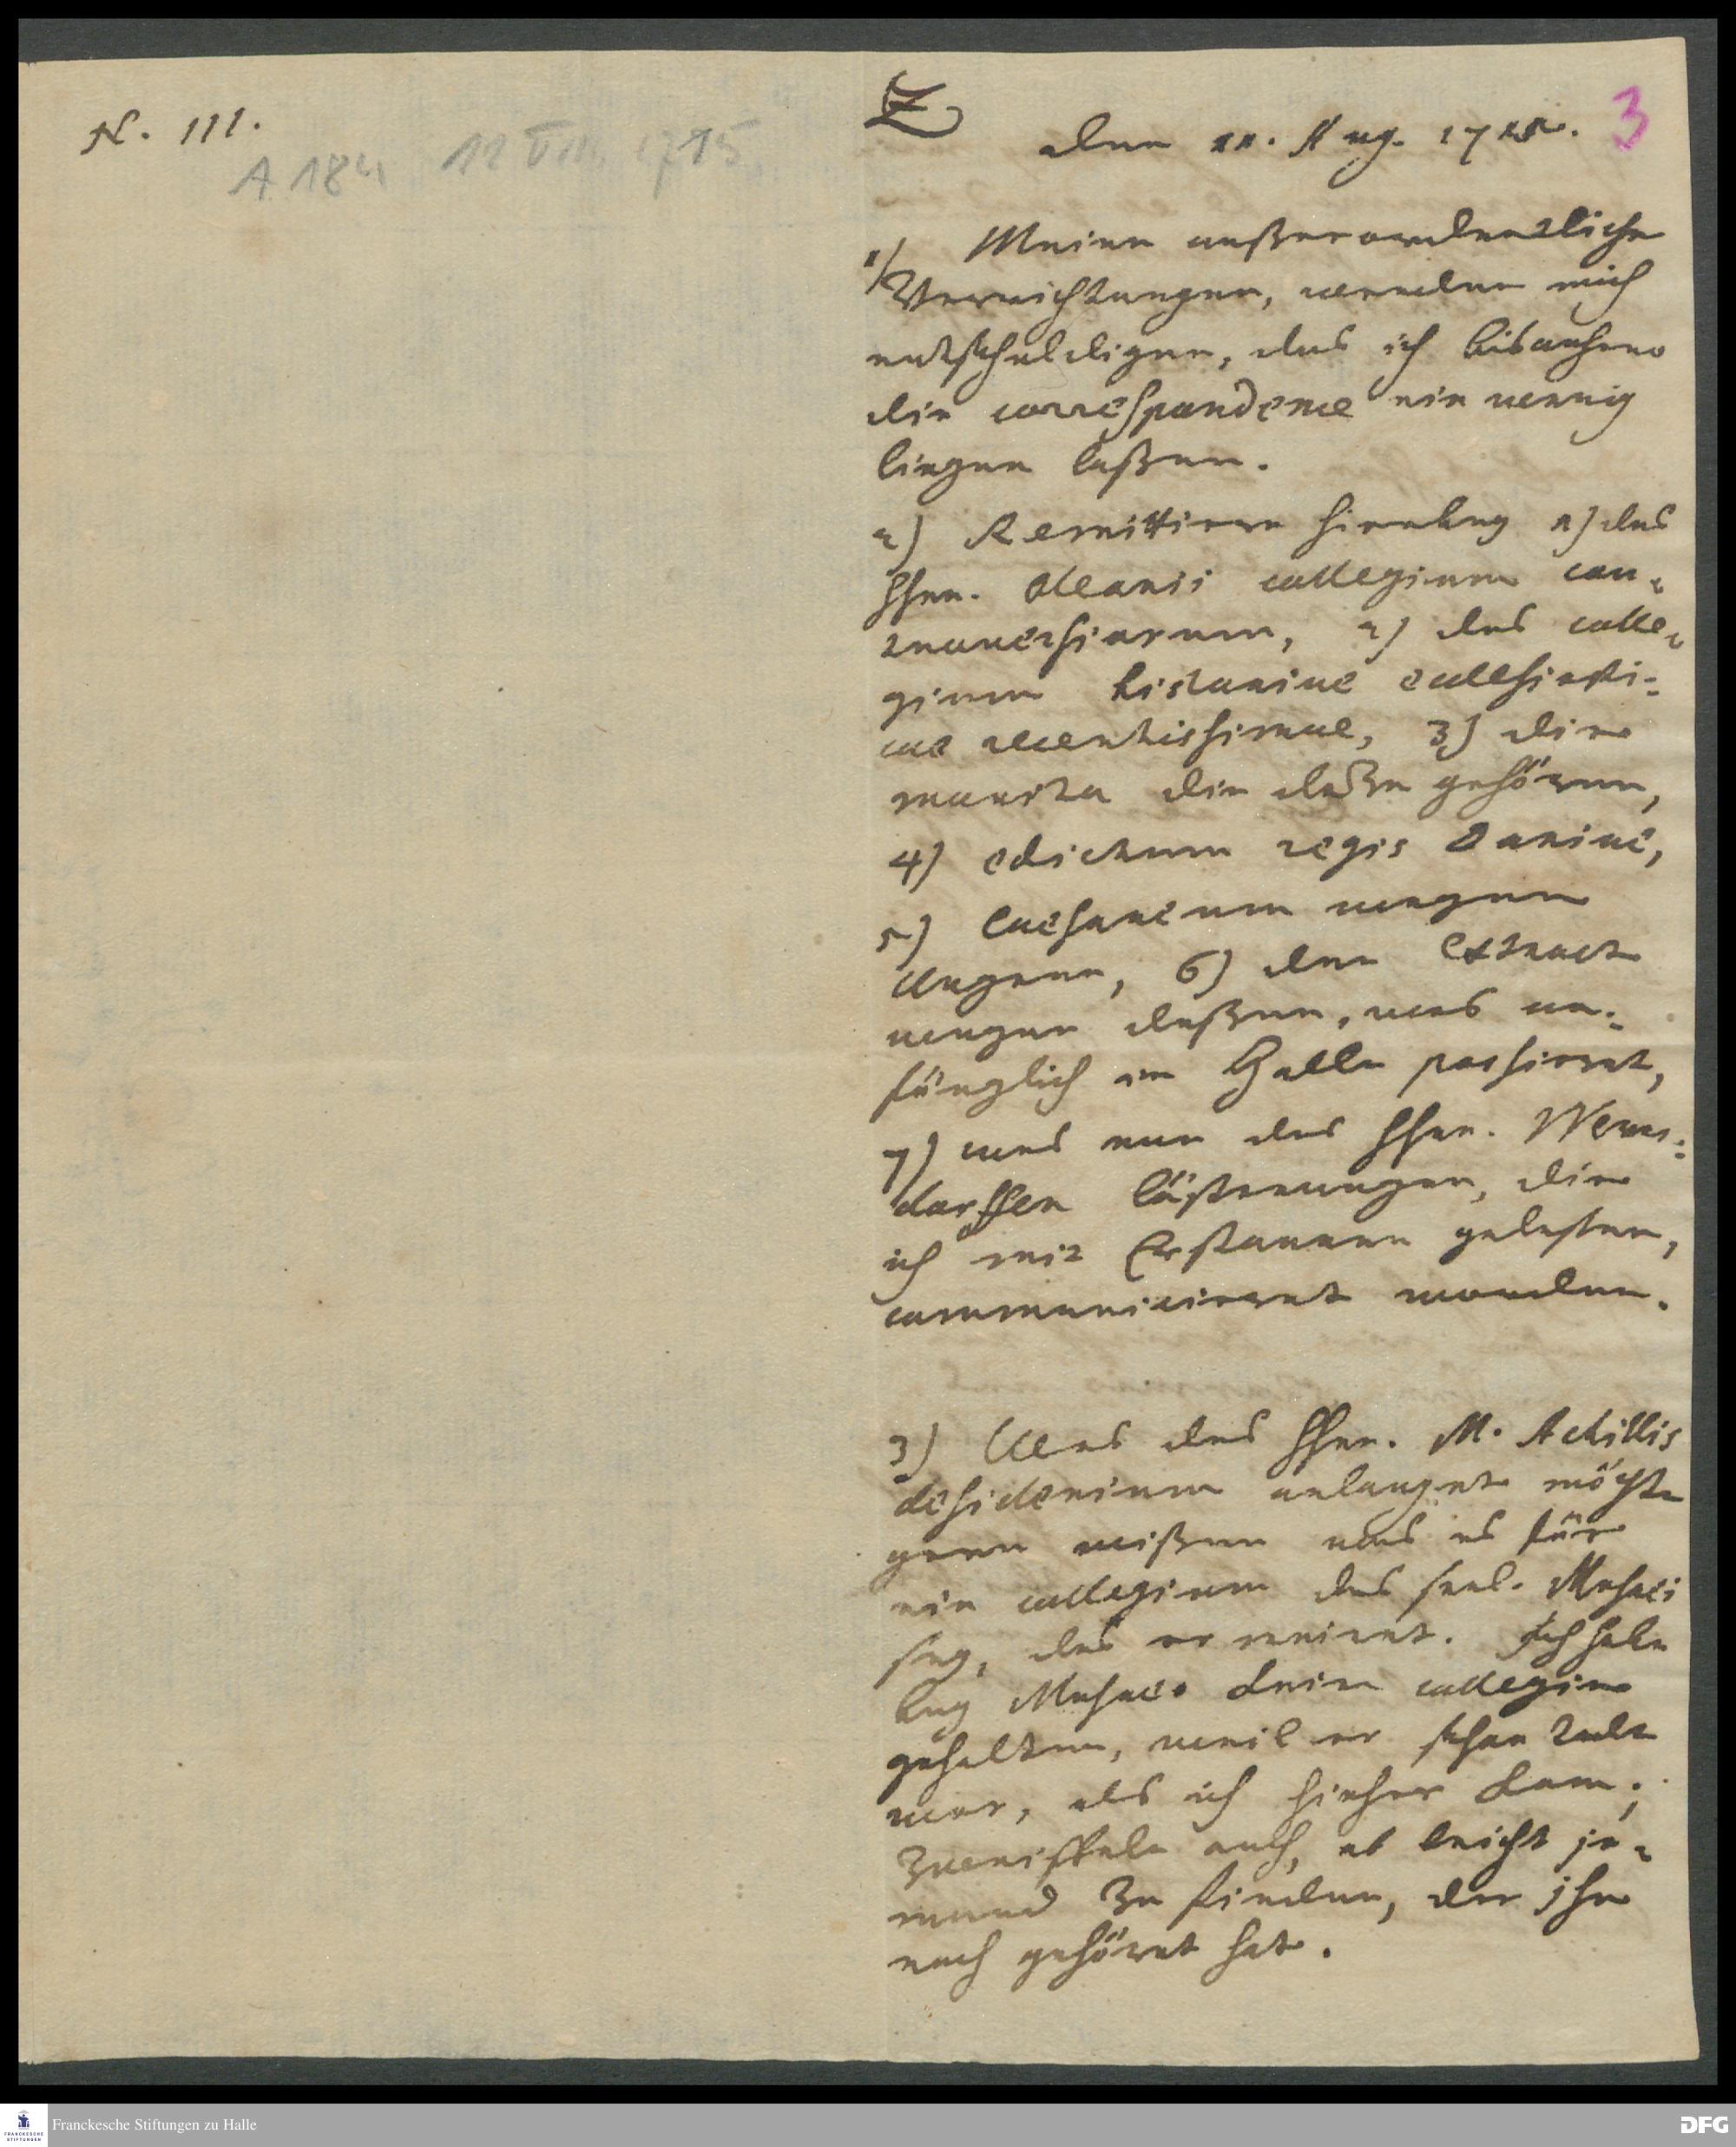 N. III.
A 184 12 VIII. 1715
3
den 12. Aug. 1715.
1) Meine außerordentliche
Verrichtungen, werden mich
entschuldigen, das ich bisanhero
die correspondence ein wenig
liegen laßen.
2) Remittiere hierbey 1) das
Hhrn. Olearii collegium con-
troversiarum, 2) das colle-
gium historiae ecclesiasti-
cae recentissimae, 3) die
monita die dazu gehören,
4) edictum regis Daniae,
5) Caesareum wegen
Ungern, 6) den Extract
wegen deßen, was an-
fänglich in Halle passiret,
7) was von des Hhrn. Werns-
dorffen lästerungen, die
ich mit Erstaunen gelesen,
communiciret worden.
3) Was des Hhrn. M. Achillis
desiderium anlanget möchte
gern wißen was es für
ein collegium des seel. Musaei
sey, das er meinet. Ich habe
bey Musaeo kein collegium
gehalten, weil er schon todt
war, als ich hieher kam;
zweiffele auch, ob leicht je-
mand zu finden, der ihn
noch gehöret hat.
Franckesche Stiftungen zu Halle
DFG